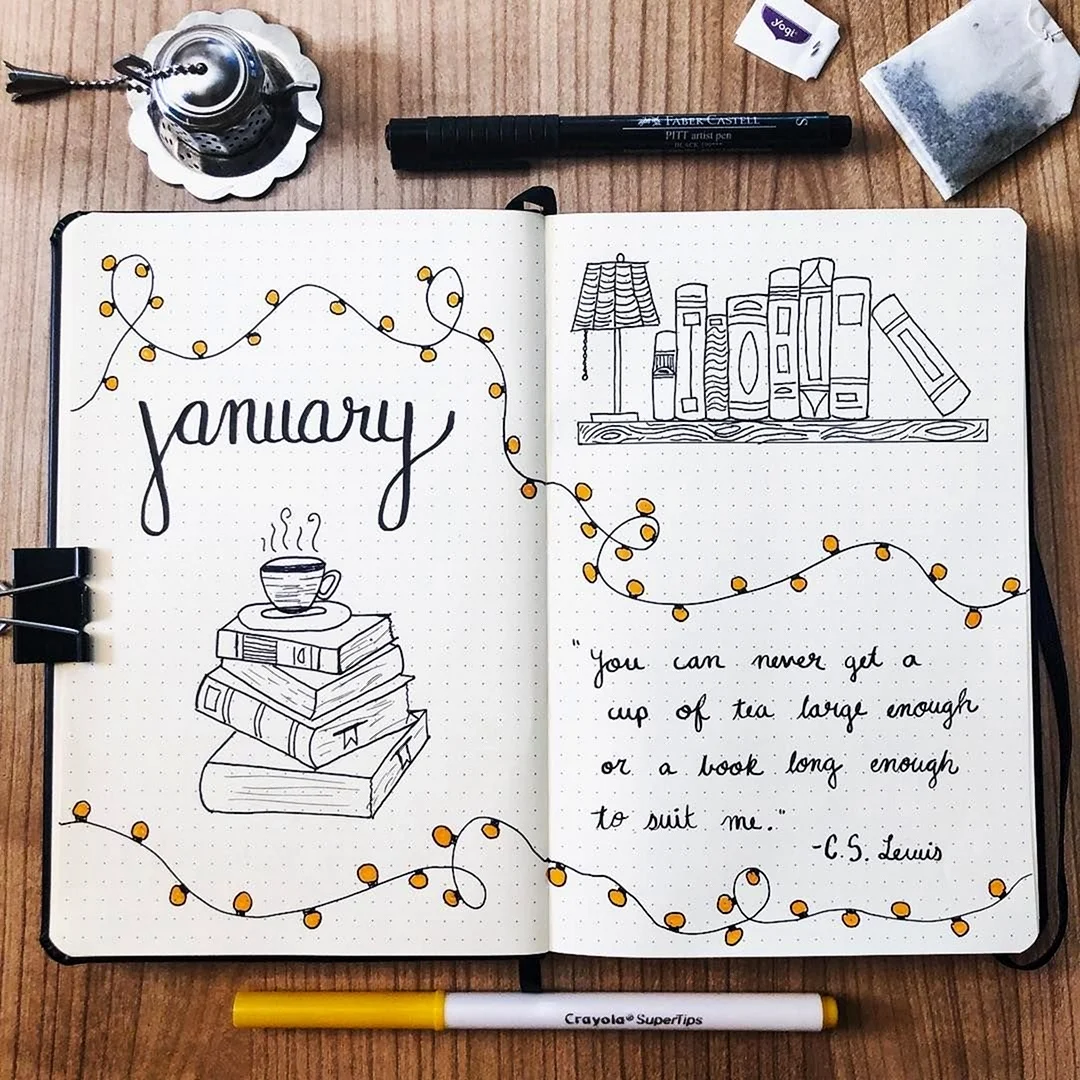 yogi
FABER-CASTELL
S
PITT artist pen
january
"You can never get a
cup of tea large enough
or a book long enough
to suit me."
-C.S. Lewis
Crayola SuperTips